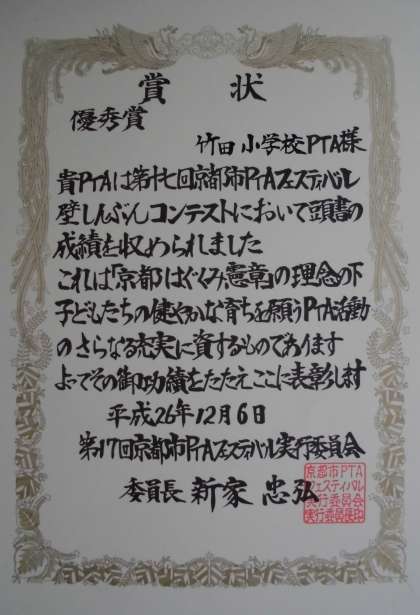 賞状
優秀賞
竹田小学校PTA様
貴PTAは第十七回京都市PTAフェスティバル
壁しんぶんコンテストにおいて頭書の
成績を収められました
これは「京都はぐくみ憲章」の理念の下
子どもたちの健やかな育ちを願うPTA活動
のさらなる充実に資するものであります
よってその御功績をたたえここに表彰します
平成26年12月6日
第17回京都市PTAフェスティバル実行委員会
委員長 新家 忠弘
京都市PTA
フェスティバル
実行委員会
実行委員長印